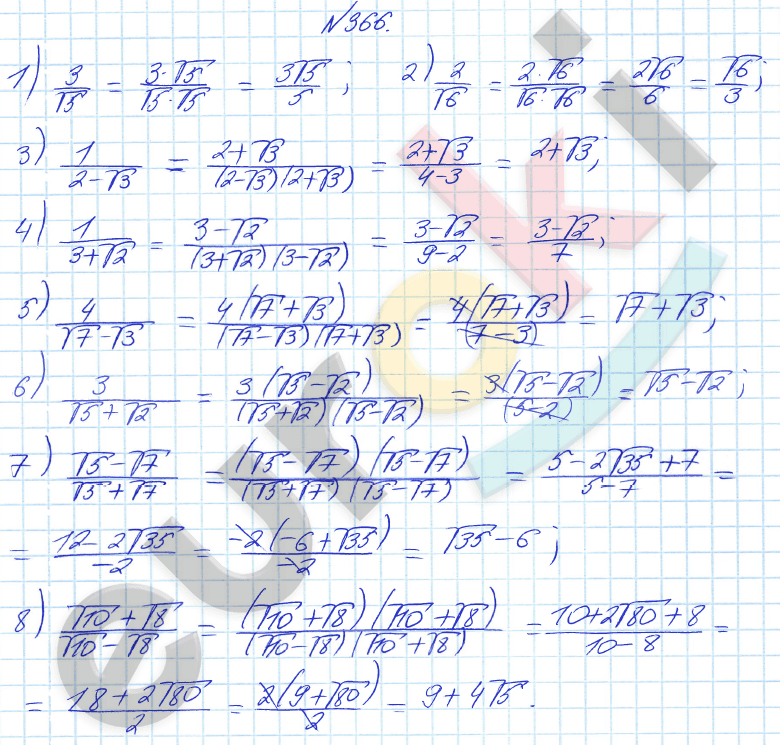 №366.
1) 3/√5 = 3·√5/√5·√5 = 3√5/5 ; 2) 2/√6 = 2·√6/√6·√6 = 2√6/6 = √6/3 ;
3) 1/2-√3 = 2+√3/(2-√3)(2+√3) = 2+√3/4-3 = 2+√3;
4) 1/3+√2 = 3-√2/(3+√2)(3-√2) = 3-√2/9-2 = 3-√2/7 ;
5) 4/√7-√3 = 4(√7+√3)/(√7-√3)(√7+√3) = 4(√7+√3)/(7-3) = √7+√3;
6) 3/√5+√2 = 3(√5-√2)/(√5+√2)(√5-√2) = 3(√5-√2)/(5-2) = √5-√2;
7) √5-√7/√5+√7 = (√5-√7)(√5-√7)/(√5+√7)(√5-√7) = 5-2√35+7/5-7 =
= 12-2√35/-2 = -2(-6+√35)/-2 = √35-6;
8) √10+√8/√10-√8 = (√10+√8)(√10+√8)/(√10-√8)(√10+√8) = 10+2√80+8/10-8 =
= 18+2√80/2 = 2(9+√80)/2 = 9+4√5.
euroki